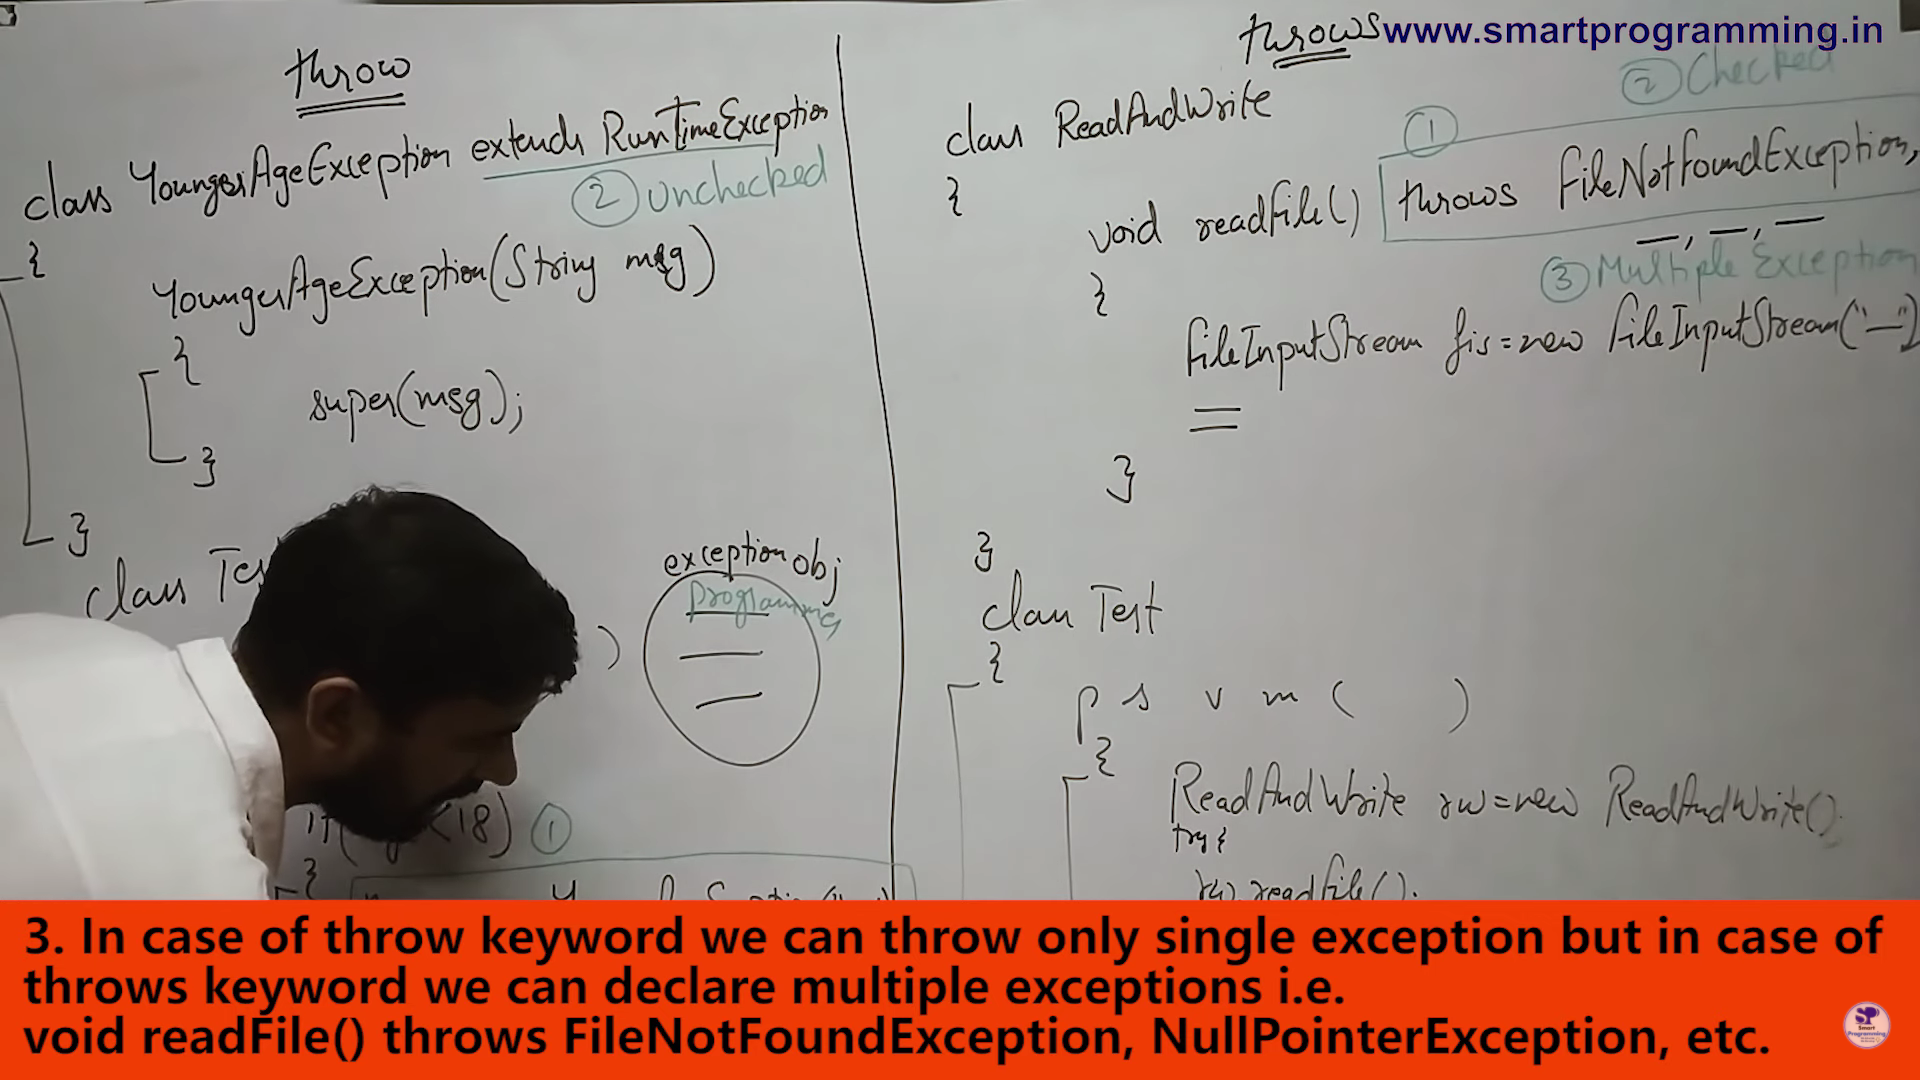 www.smartprogramming.in
throw
class YoungerAgeException extends RunTimeException
② Unchecked
{
YoungerAgeException(String msg)
{
super(msg);
}
}
class Tes
exception obj
Programmer
)
<18) ①
{
throws
② Checked
class ReadAndWrite
①
{
void readFile() throws FileNotFoundException,
—, —, —
③ Multiple Exception
{
FileInputStream fis = new FileInputStream("—")
}
}
class Test
{
p s v m ( )
{
ReadAndWrite rw = new ReadAndWrite();
try {
rw.readFile();
3. In case of throw keyword we can throw only single exception but in case of
throws keyword we can declare multiple exceptions i.e.
void readFile() throws FileNotFoundException, NullPointerException, etc.
SP
Smart
Programming